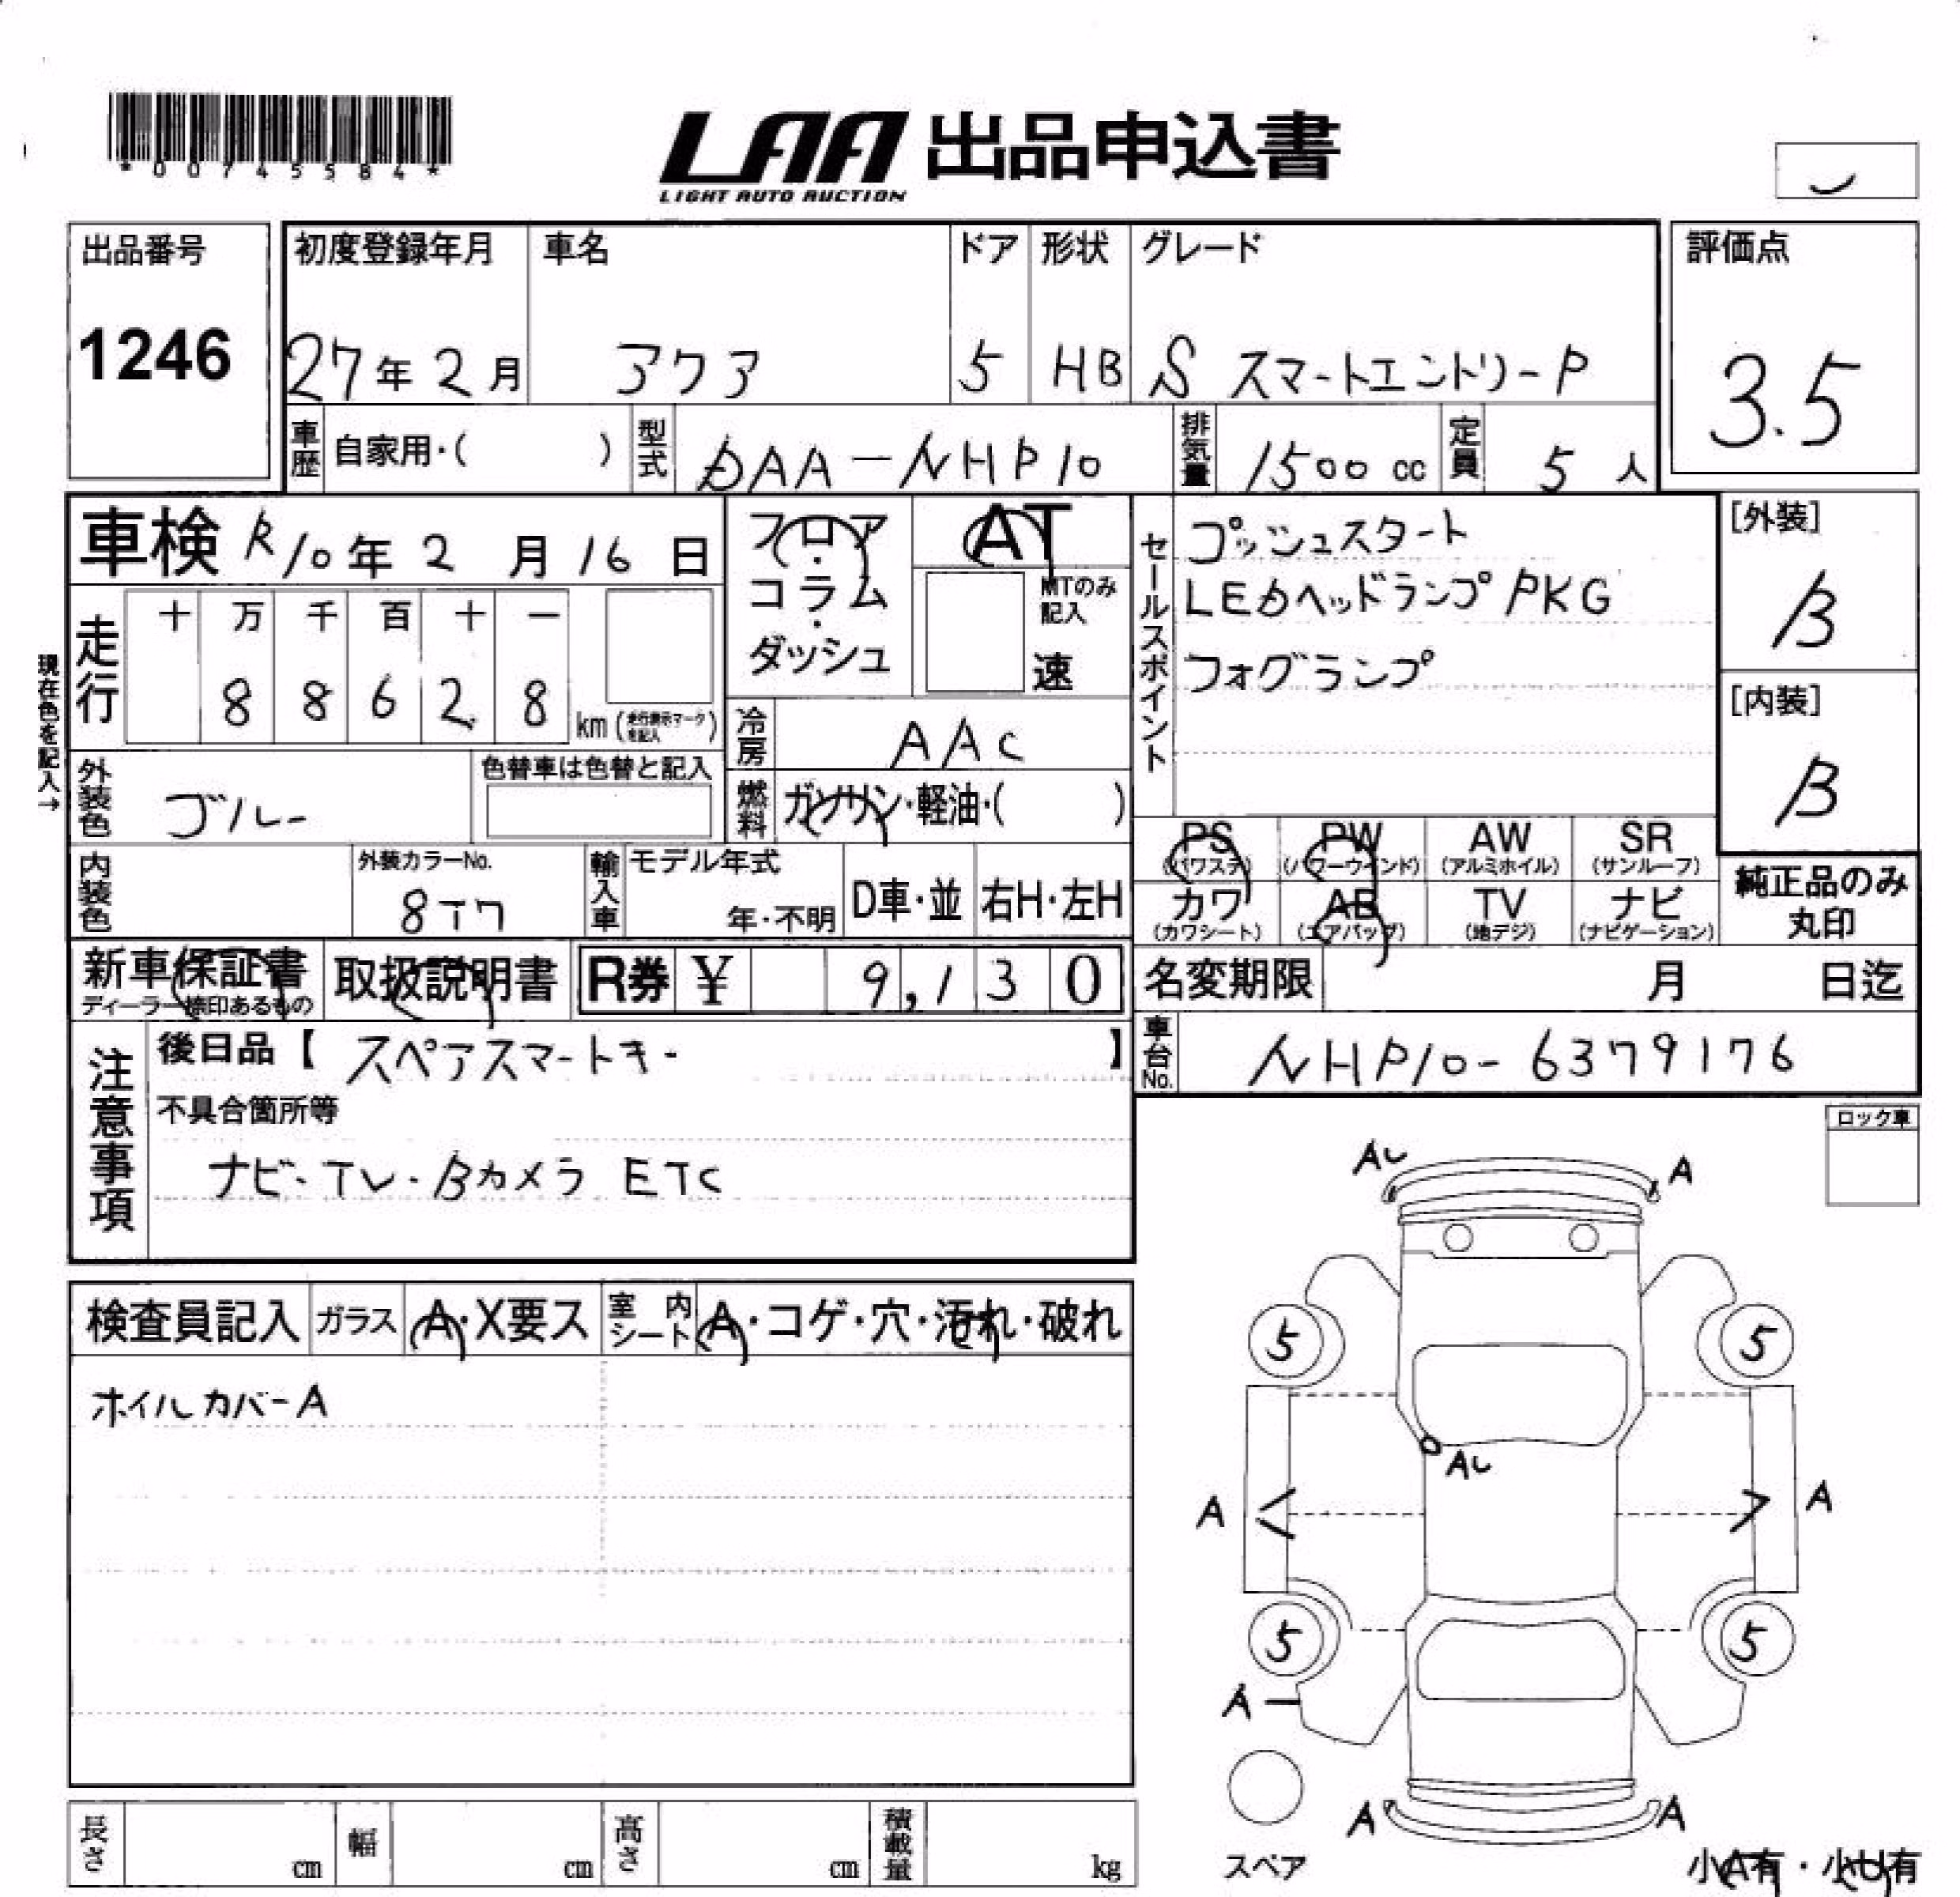 *00745584*
LAA 出品申込書
LIGHT AUTO AUCTION
出品番号
1246
初度登録年月 車名 ドア 形状 グレード
27年2月 アクア 5 HB S スマートエントリーP
評価点
3.5
車歴 自家用・( ) 型式 DAA-NHP10 排気量 1500 cc 定員 5 人
車検 R10年2月16日
走行
十 万 千 百 十 一
8 8 6 2 8 km
現在色を記入→
フロア・コラム・ダッシュ
AT
MTのみ記入
速
冷房 AAC
燃料 ガソリン・軽油・( )
セールスポイント
プッシュスタート
LEDヘッドランプPKG
フォグランプ
[外装]
B
[内装]
B
外装色 ブルー
色替車は色替と記入
内装色
外装カラーNo.
8T7
輸入車 モデル年式
年・不明 D車・並 右H・左H
PS PW AW SR
(パワステ) (パワーウインド) (アルミホイル) (サンルーフ)
カワ AB TV ナビ
(カワシート) (エアバッグ) (地デジ) (ナビゲーション)
純正品のみ
丸印
新車保証書 取扱説明書 R券 ¥ 9,130
ディーラー捺印あるもの
名変期限 月 日迄
車台No. NHP10-6379176
注意事項
後日品【スペアスマートキー】
不具合箇所等
ナビ・TV・Bカメラ ETC
ロック車
検査員記入 ガラス A・X要ス 室内シート A・コゲ・穴・汚れ・破れ
ホイルカバーA
A A
5 5
A A
5 5
A
A A
スペア
小A有・小U有
長さ cm 幅 cm 高さ cm 積載量 kg